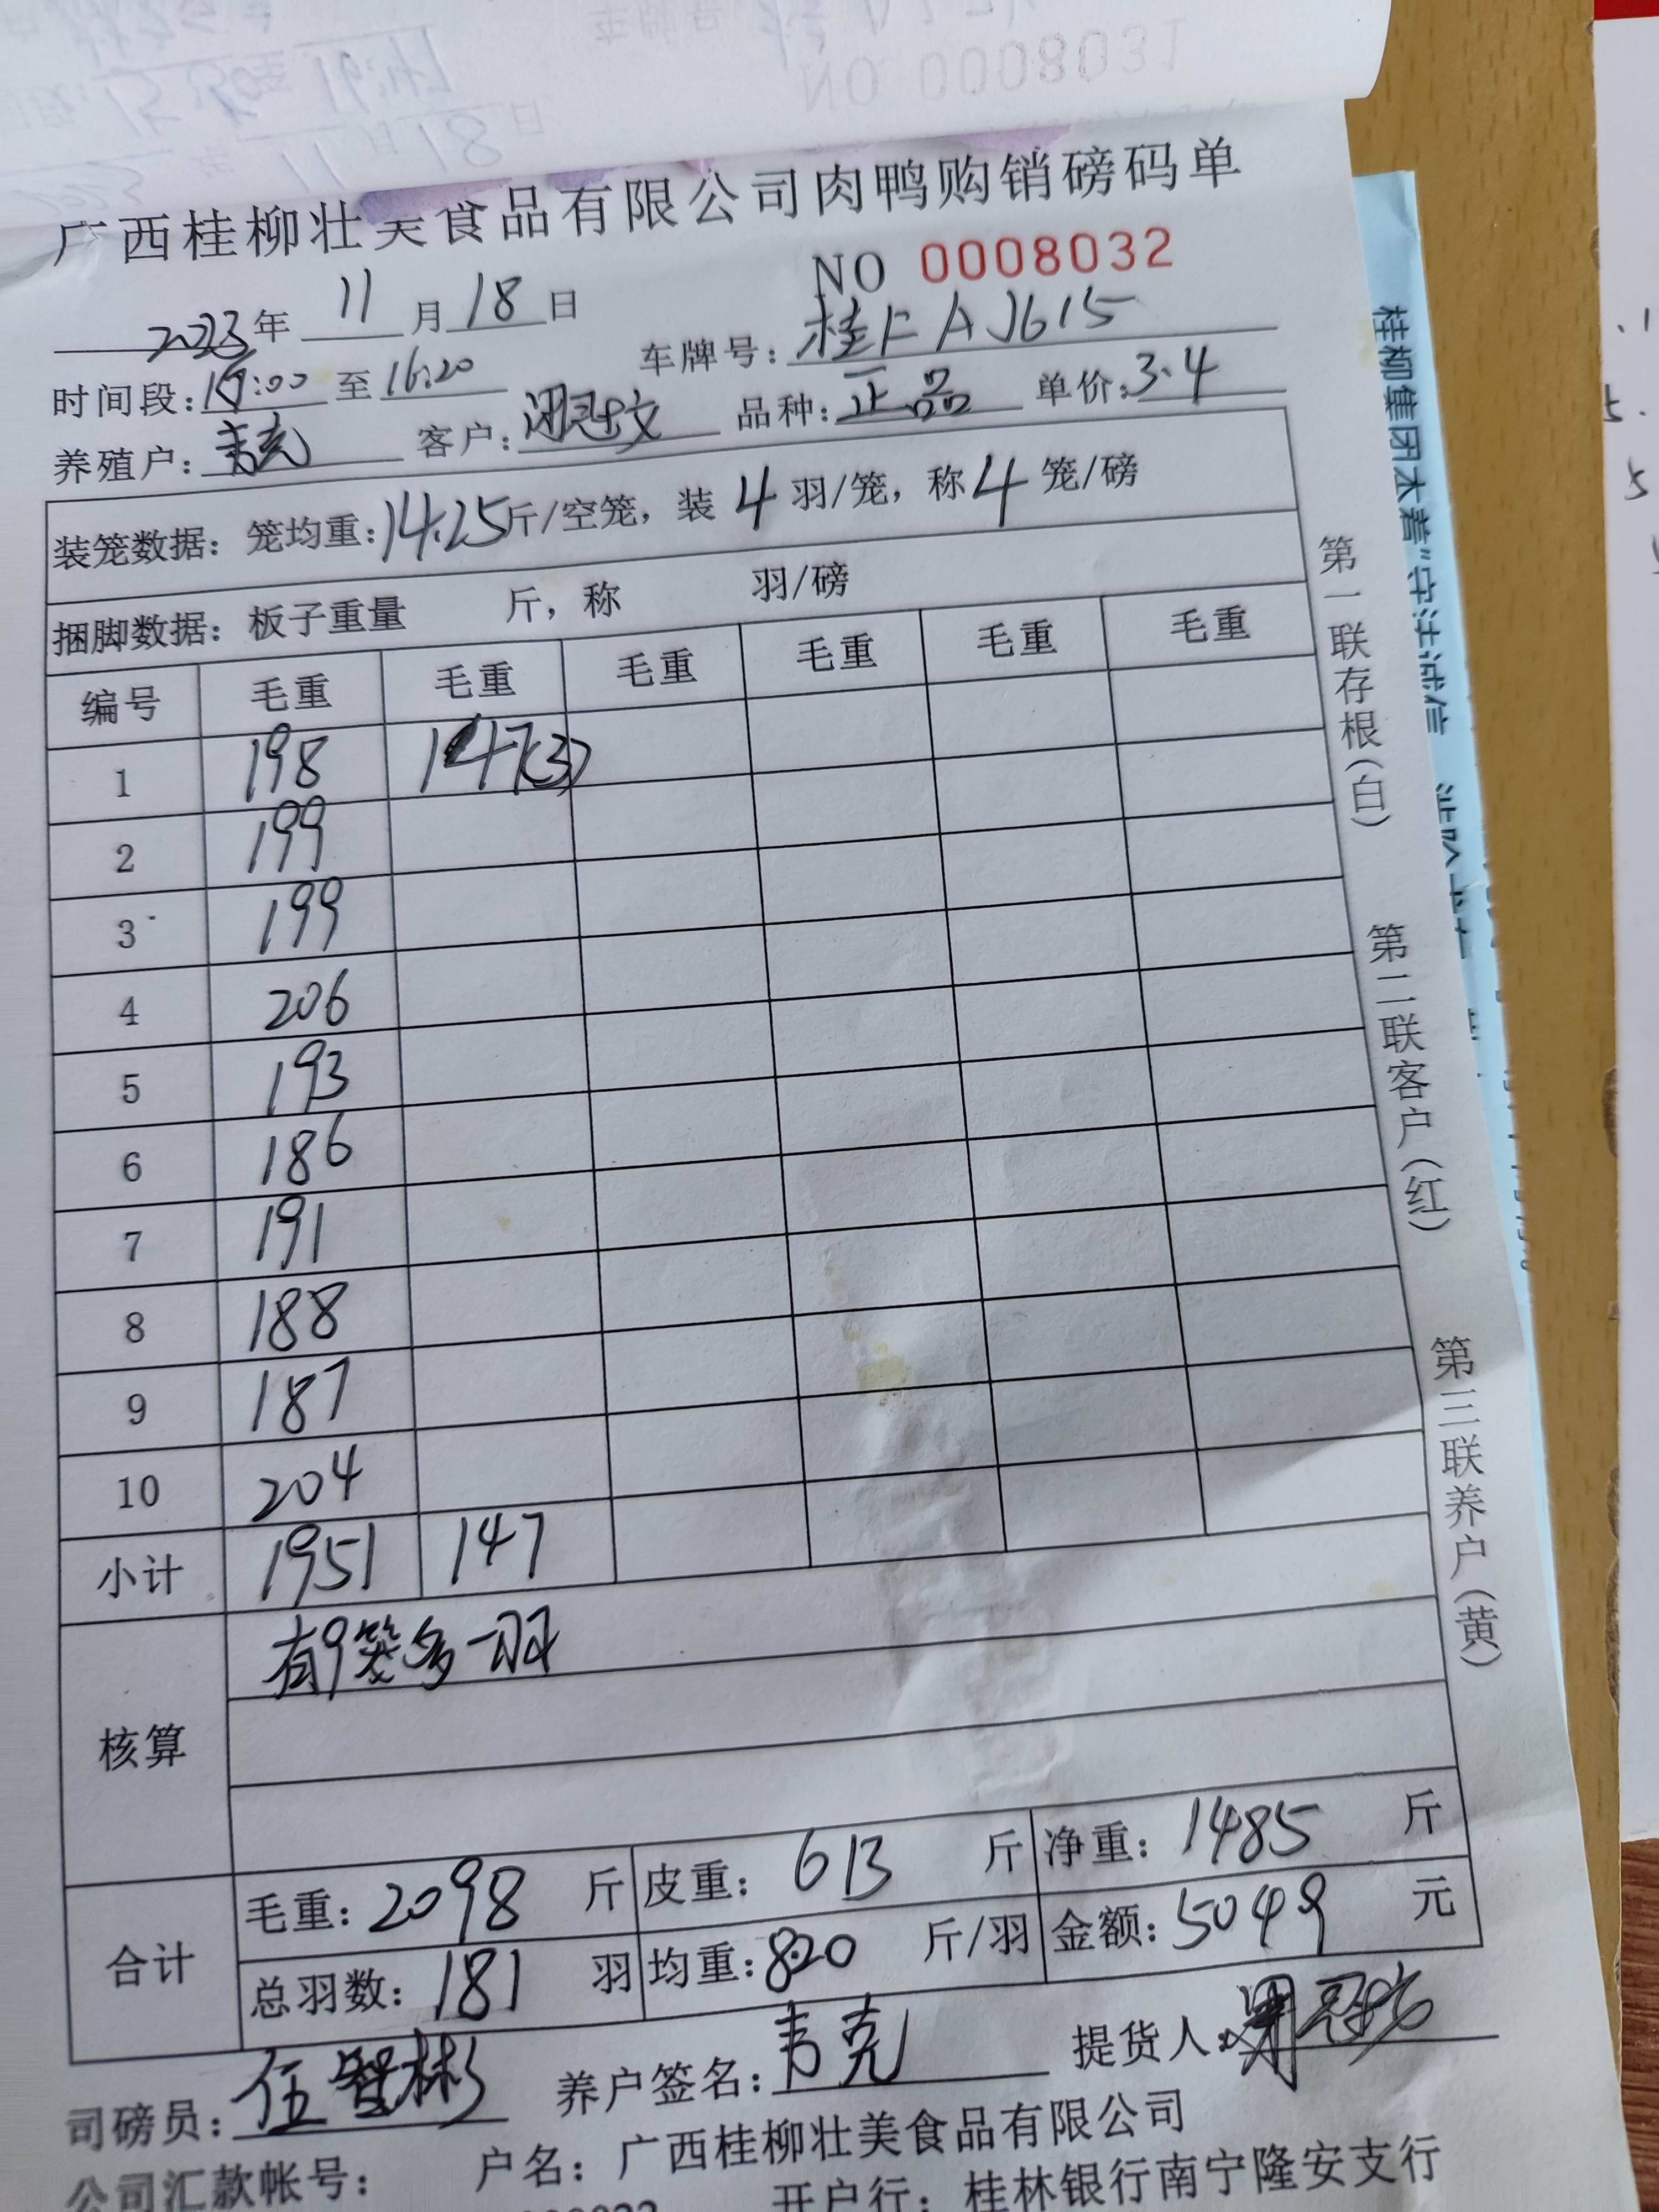 NO 0008031
广西桂柳壮美食品有限公司肉鸭购销磅码单
NO 0008032
2023年 11月18日
车牌号: 桂FAJ615
时间段: 15:00 至 16:20
养殖户: 韦克 客户: 闭冠文 品种: 正品 单价: 3.4
装笼数据: 笼均重: 14.25斤/空笼, 装 4 羽/笼, 称 4 笼/磅
捆脚数据: 板子重量 斤, 称 羽/磅
编号 毛重 毛重 毛重 毛重 毛重 毛重
1 198 147(3)
2 199
3 199
4 206
5 193
6 186
7 191
8 188
9 187
10 204
小计 1951 147
核算 有9笼多一羽
合计 毛重: 2098 斤 皮重: 613 斤 净重: 1485 斤
总羽数: 181 羽 均重: 8.20 斤/羽 金额: 5049 元
司磅员: 伍智彬 养户签名: 韦克 提货人:
公司汇款帐号: 户名: 广西桂柳壮美食品有限公司
开户行: 桂林银行南宁隆安支行
第一联存根(白) 第二联客户(红) 第三联养户(黄)